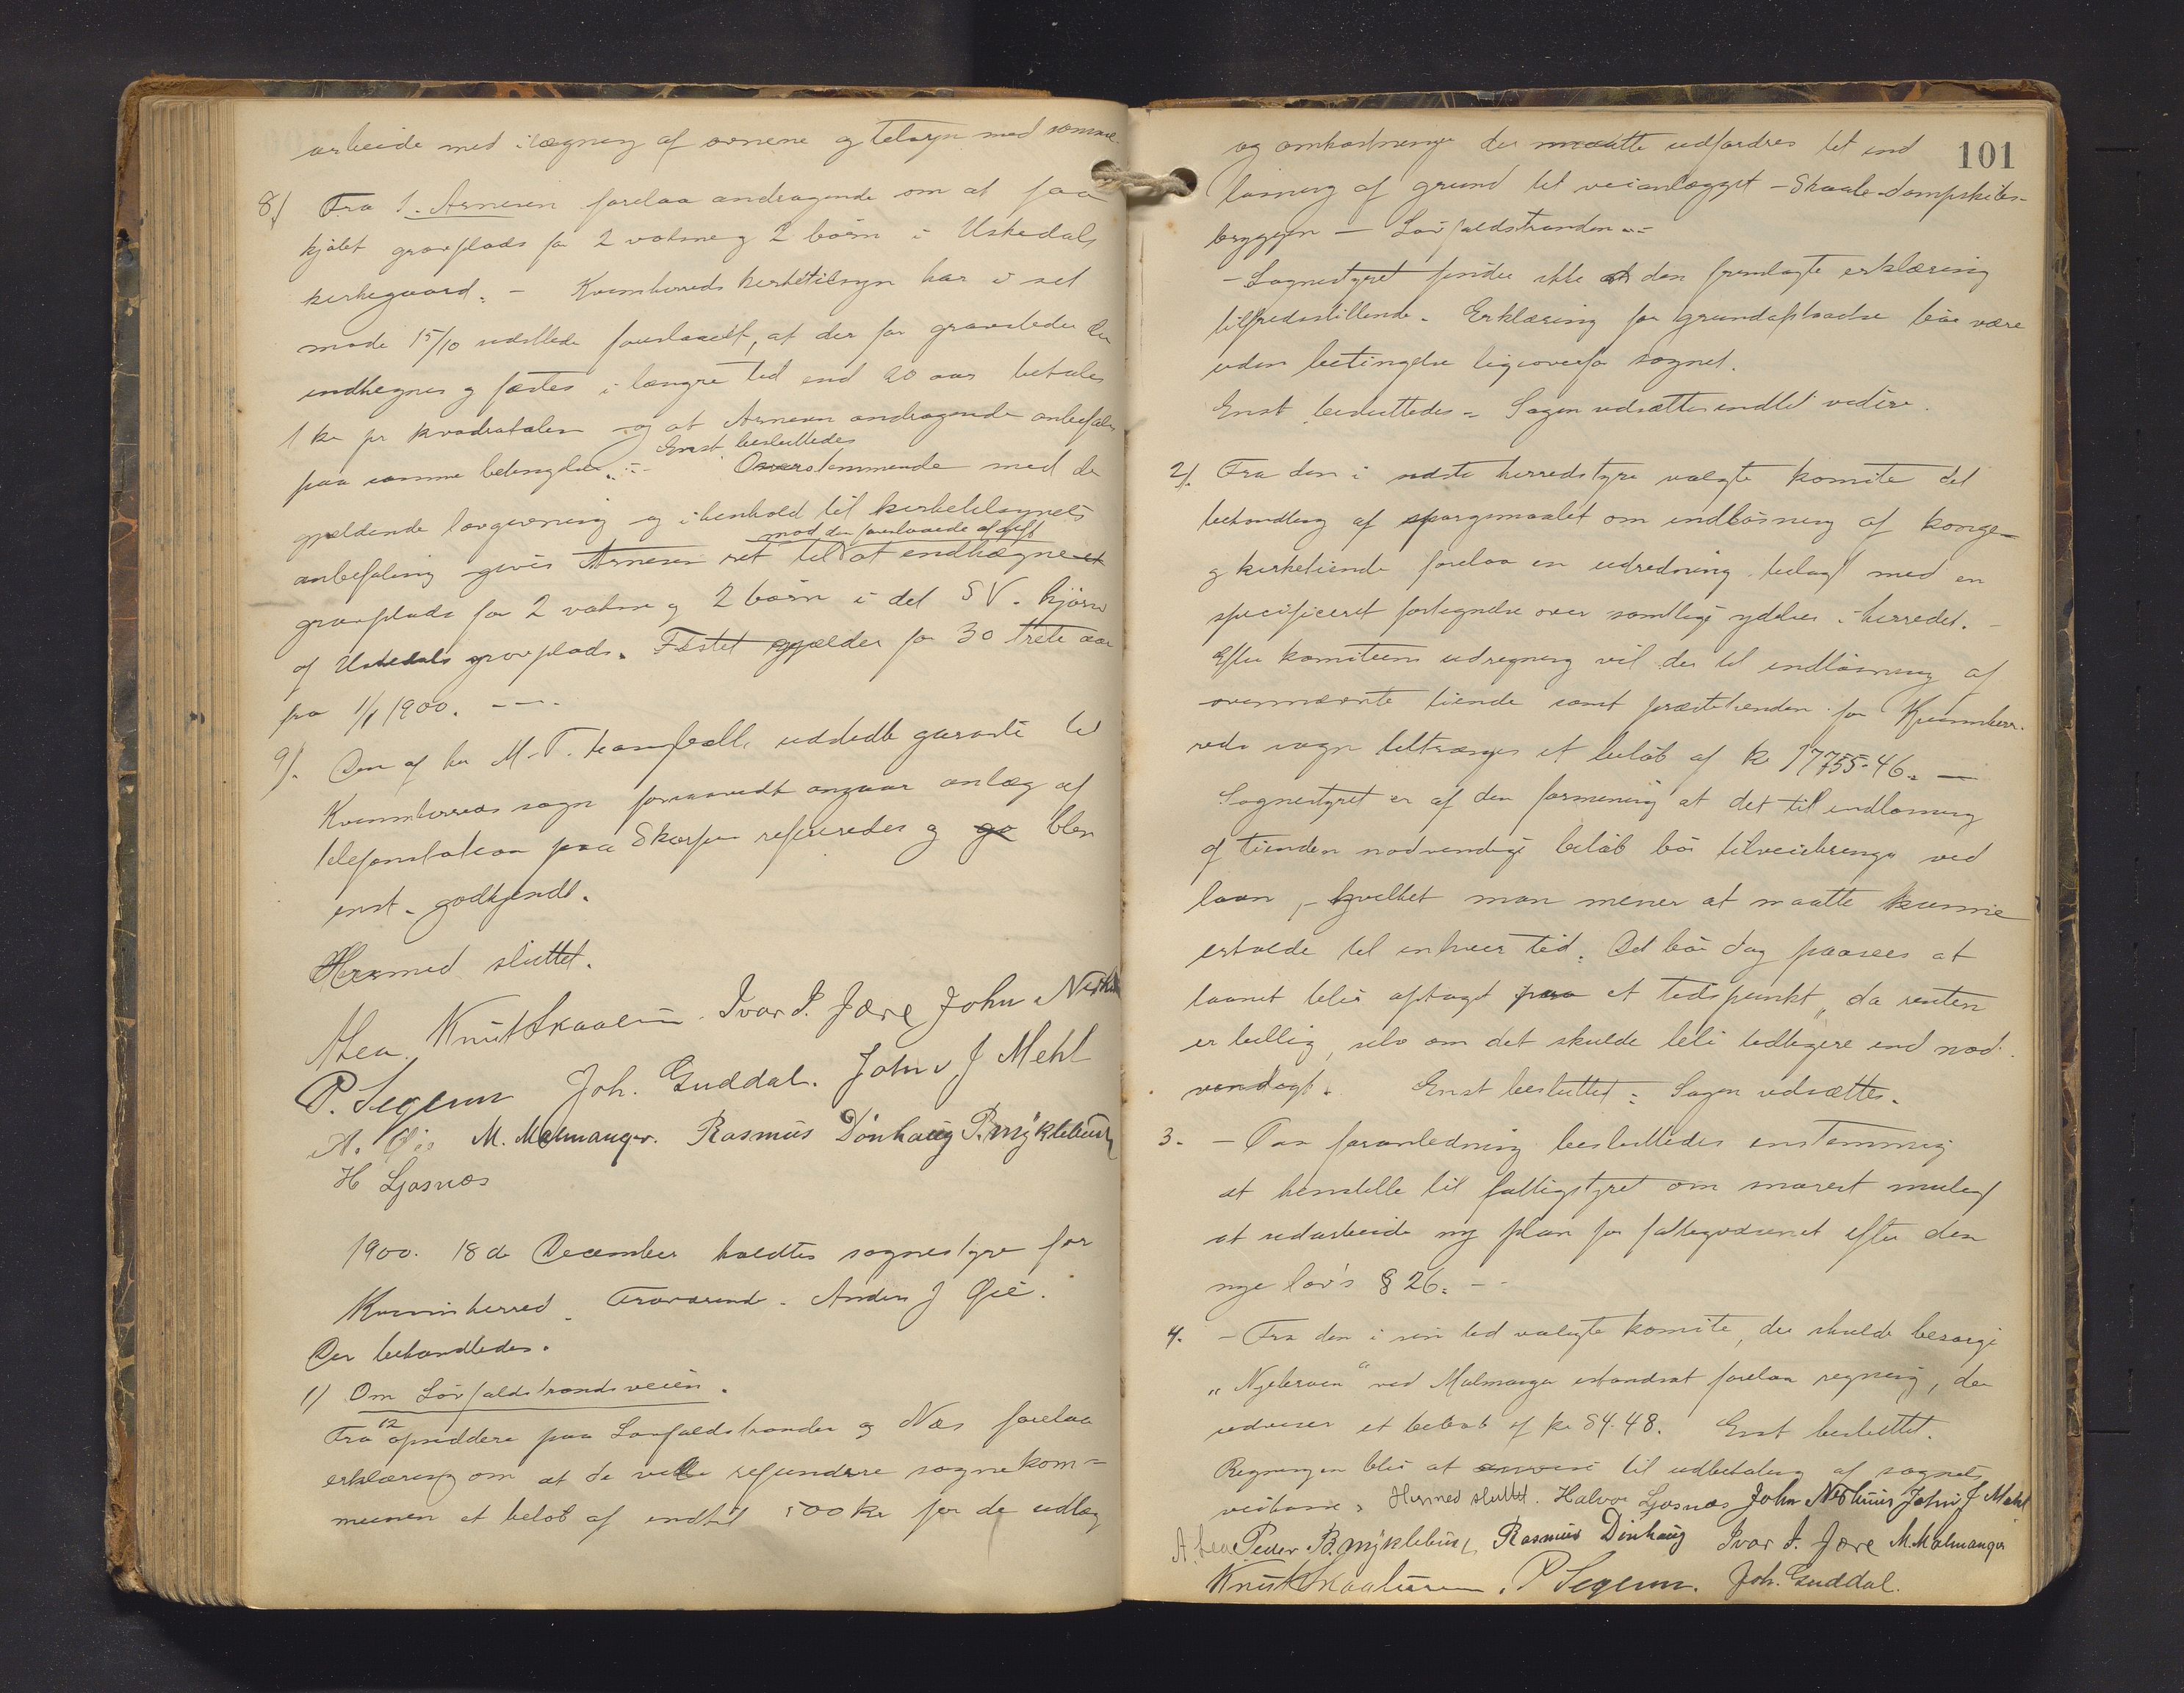 arbeide med ilægning af ovnene og tilsyn med samme
8) Fra S. Arnesen forelaa andragende om at faa
kjøbt gravplads for 2 voksne og 2 børn i Uskedals
kirkegaard. - Kvinherreds kirketilsyn har i sit
møde 15/10 sidstleden foreslaaet, at der for gravsteder der
indhegnes og fæstes i længre tid end 20 aar betales
1 kr pr kvadratalen og at Arnesen andragende anbefales
paa samme betingelse. - Enst. besluttedes
Overstemmende med de
gjældende lovgivning og i henhold til kirketilsynets
anbefaling gives Arnesen ret til mod den foreslaaede afgift at indhægne et
gravplads for 2 voksne og 2 børn i det SV. hjørne
af Uskedals gravplads. Fæstet gjælder for 30 treti aar
fra 1/1 1900. ---
9). Den af hr M. T. udstedte garanti til
Kvinnherreds sogn forsaavidt angaar anlæg af
telefonstation paa Skorpen refereredes og blev
enst. godkjendt.
Hermed sluttet.
A Lea. Knut Skaaluren. Ivar I. Jære John Nerhus
P. Segerm Joh. Guddal. John J Mehl
A. Øie M. Malmanger. Rasmus Dönhaug P. B. Myklebust
H Ljosnæs
1900. 18de December holdtes sognestyre for
Kvinnherred. Fraværende. Anders J Øie.
Der behandledes.
1) Om Løvfaldstrandsveien.
Fra 12 opsiddere paa Løvfaldstranden og Næs forelaa
erklæring om at de ville refundere sognekom=
munen et beløb af indtil 500 kr for de udlæg
101
og omkostninger der maatte udfordres til ind
løsning af grund til veianlægget - Skaale dampskibs-
bryggen - Løvfaldstranden. -
- Sognestyret finder ikke den fremlagte erklæring
tilfredsstillende. Erklæring for grundafstaaelse bør være
uden betingelse ligeoverfor sognet.
Enst. besluttedes = Sagen udsættes indtil videre.
2). Fra den i sidste herredstyre valgte komite til
behandling af spørgsmaalet om indløsning af konge-
og kirketiende forelaa en udredning bilagt med en
specificeret fortegnelse over samtlige ydelser i herredet. -
Efter komiteens udregning vil der til indløsning af
ovennævnte tiende samt prestetienden for Kvinnher-
reds sogn tiltrænges et beløb af kr 17755.46. -
Sognestyret er af den formening at det til indløsning
af tienden nødvendige beløb bør tilveiebringes ved
laan, - hvilket man mener at maatte kunne
erholde til enhver tid. Det bør dog paasees at
laanet blir optaget paa et tidspunkt, da renten
er billig, selv om det skulde bli tidligere end nød-
vendigt. Enst besluttet: Sagen udsættes.
3. - Paa foranledning besluttedes enstemmig
at henstille til fattigstyret om snarest mulig
at udarbeide ny plan for fattigvæsenet efter den
nye lov's § 26. - -
4. - Fra den i sin tid valgte komite, der skulde besørge
"Nybroen" ved Malmanger istandsat forelaa regning, der
udviser et beløb af kr 84.48. Enst besluttet.
Regningen blir at anvise til udbetaling af sognets
veikasse. Hermed sluttet. Halvor Ljosnæs John Nerhus John J Mehl
A. Lea Peder B. Myklebust Rasmus Dönhaug Ivar I. Jære M. Malmanger
Knut Skaaluren. P Segerm. Joh. Guddal.